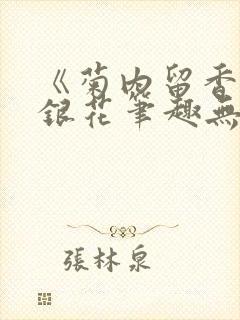 《菊内留香
銀花筆趣無
張林泉